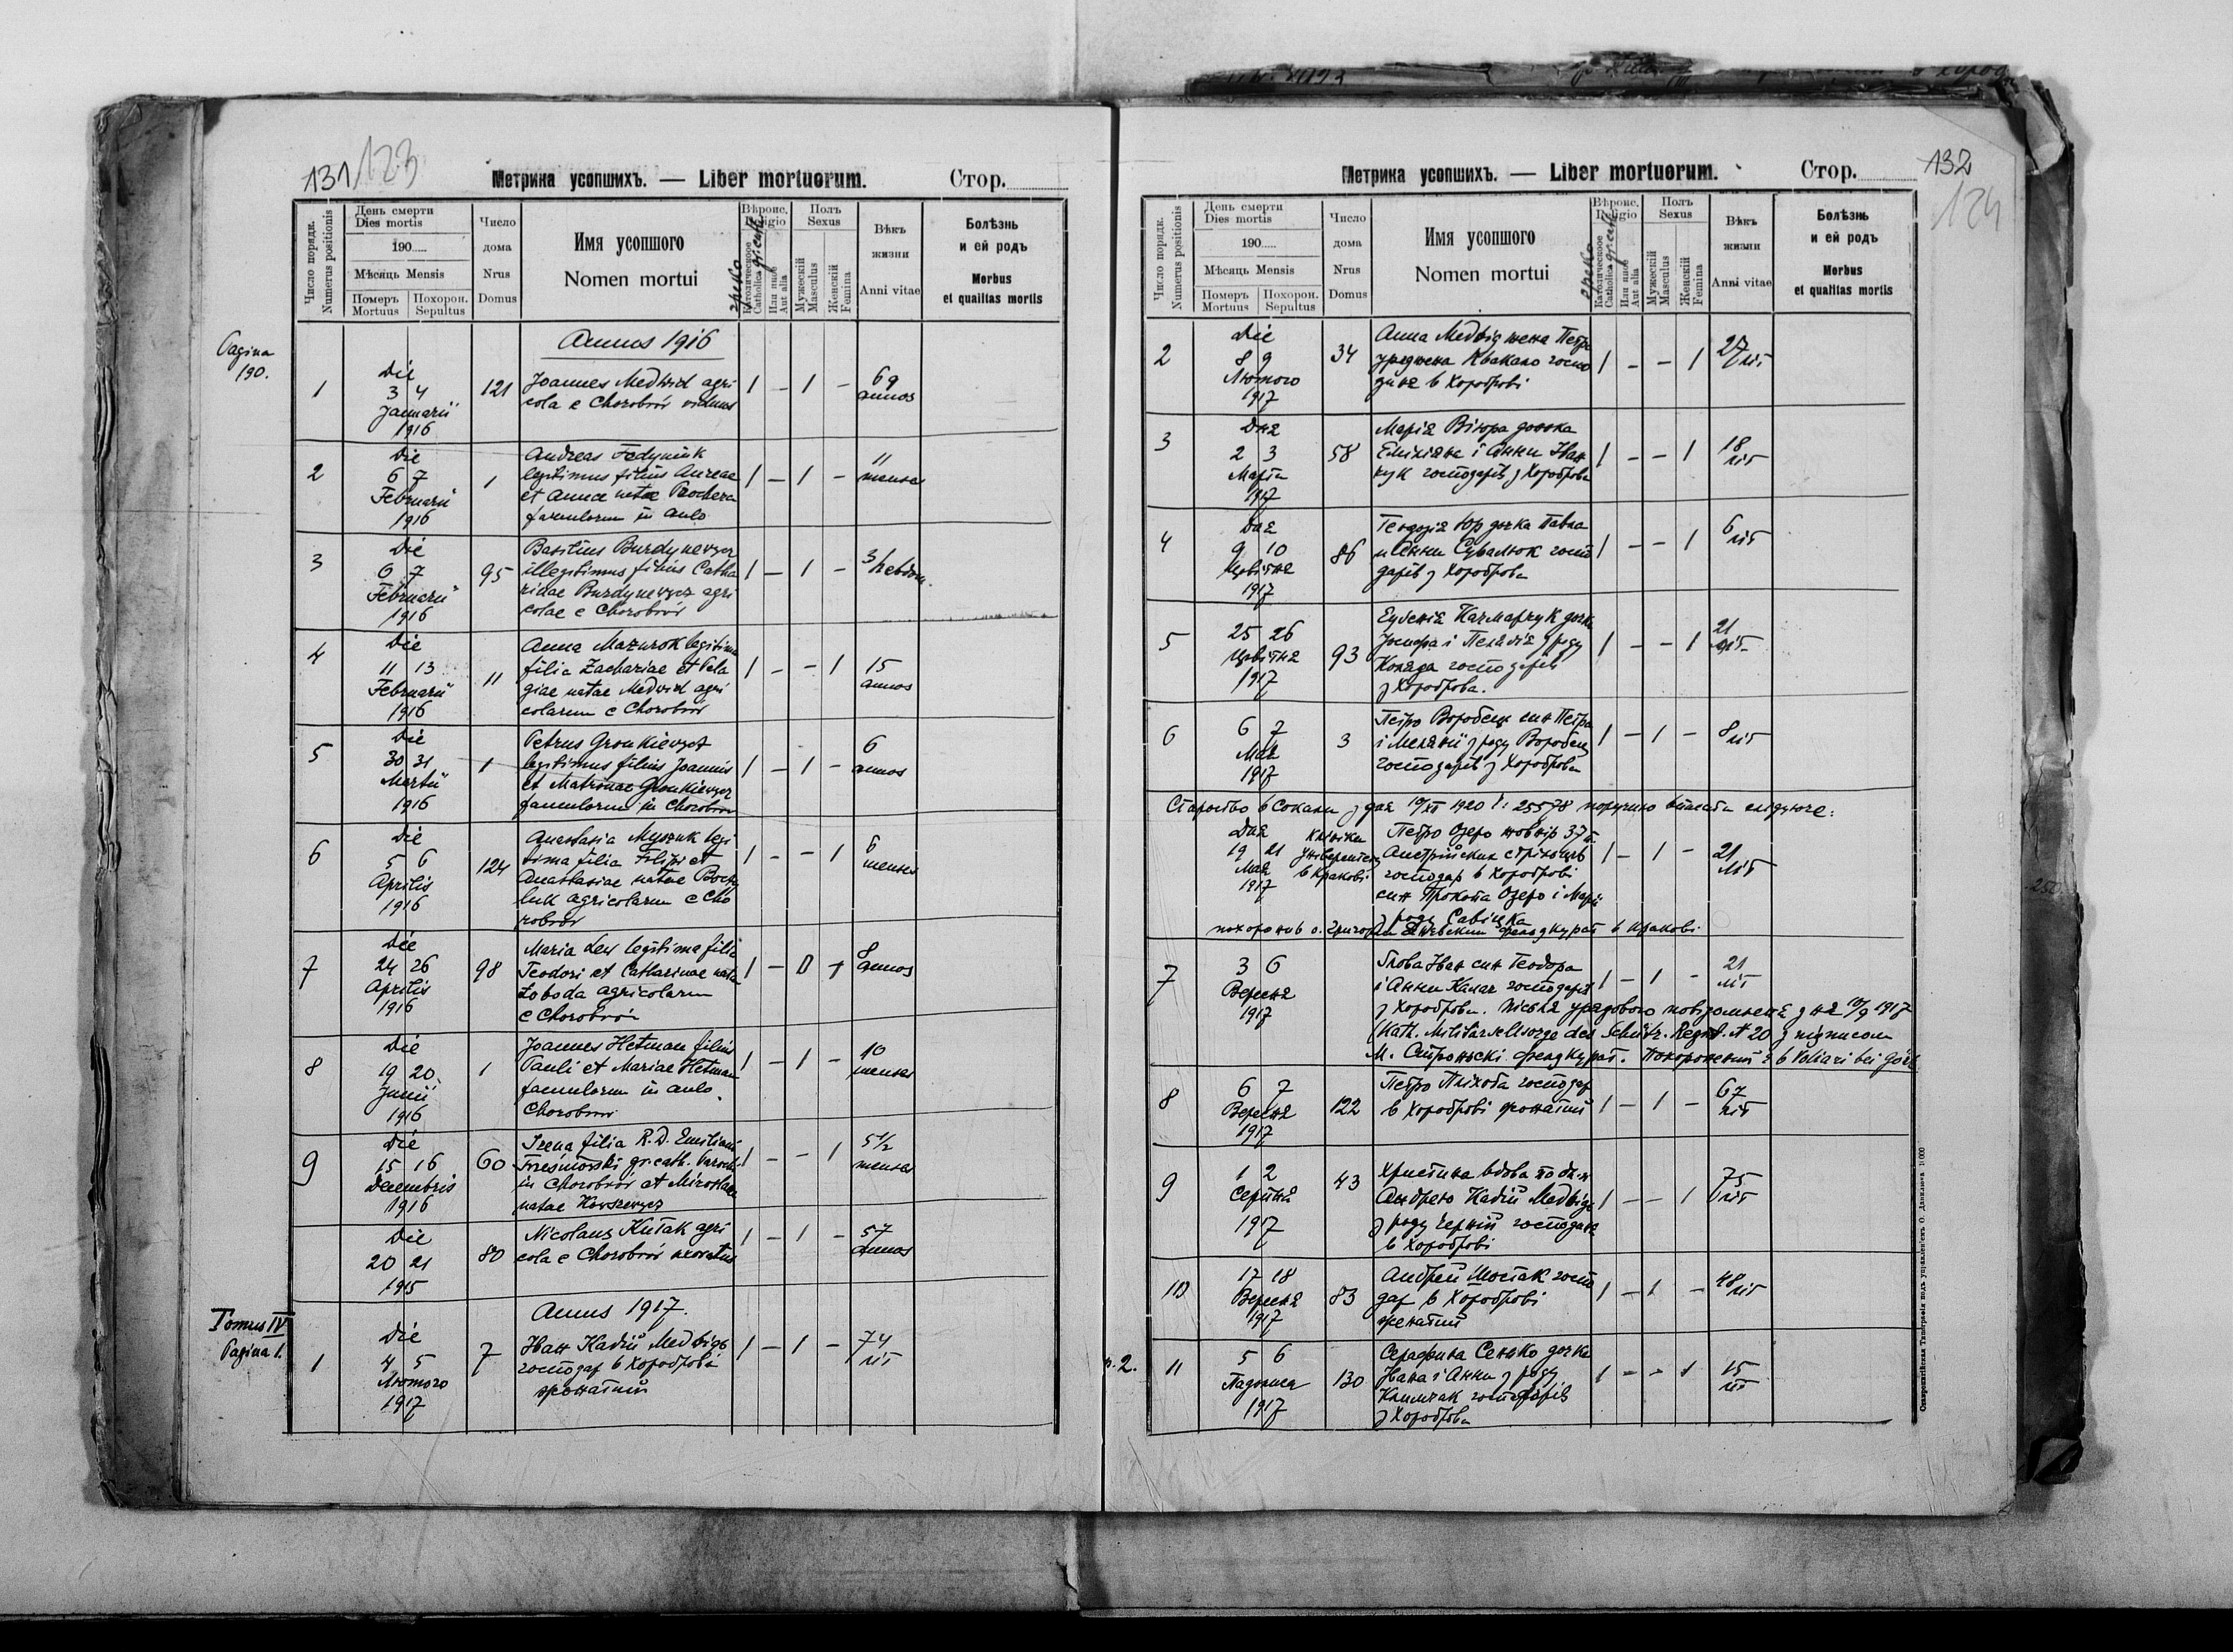 131/123
Метрика усопшихъ. — Liber mortuorum.
Стор.
Число порядк.
Numerus positionis
День смерти
Dies mortis
190
Мѣсяць Mensis
Померъ
Mortuus
Похорон.
Sepultus
Число
дома
Nrus
Domus
Имя усопшого
Nomen mortui
Вѣроис.
Religio
греко
Католическое
Catholica
graeca
Или иное
Aut alia
Полъ
Sexus
Мужескій
Masculus
Женскій
Femina
Вѣкъ
жизни
Anni vitae
Болѣзнь
и ей родъ
Morbus
et qualitas mortis
Pagina
190.
Annus 1916
1 Die 3 4 Januarii 1916 121 Joannes Medwid agri
cola e Chorobrów viduus 1 – 1 – 69 annos
2 Die 6 7 Februarii 1916 1 Andreas Fedyniuk
legitimus filius Andreae
et Annae natae
famulorum in aulo 1 – 1 – 11 menses
3 Die 6 7 Februarii 1916 95 Basilius Burdynewycz
illegitimus filius Catha
rinae Burdynewycz agri
colae e Chorobrów 1 – 1 – 3 hebdom.
4 Die 11 13 Februarii 1916 11 Anna Mazurok legitima
filia Zachariae et Pela
giae natae Medwid agri
colarum e Chorobrów 1 – – 1 15 annos
5 Die 30 31 Martii 1916 1 Petrus Gronkiewycz
legitimus filius Joannis
et Matronae Gronkiewycz
famulorum in Chorobrów 1 – 1 – 6 annos
6 Die 5 6 Aprilis 1916 124 Anastasia Myszuk legi
tima filia Filipi et
Anastasiae natae
luk agricolarum e Cho
robrów 1 – – 1 6 menses
7 Die 24 26 Aprilis 1916 98 Maria Lew legitima filia
Teodori et Catharinae natae
Łoboda agricolarum
e Chorobrów 1 – 0 1 8 annos
8 Die 19 20 Junii 1916 1 Joannes Hetman filius
Pauli et Mariae Hetman
famulorum in aulo
Chorobrów 1 – 1 – 10 menses
9 Die 15 16 Decembris 1916 60 Irena filia R. D. Emiliani
Trześniowski gr. cath. Parochi
in Chorobrów et Miroslawae
natae 1 – – 1 5 1/2 menses
Die 20 21 1915 80 Nicolaus Kułak agri
cola e Chorobrów uxoratus 1 – 1 – 57 annos
Tomus IV
Pagina 1.
Annus 1917.
1 Die 4 5 Лютого 1917 7 Иван Кадій Медвідь
господар в Хороброві
жонатий 1 – 1 – 74 літ
132
124
Метрика усопшихъ. — Liber mortuorum.
Стор.
Число порядк.
Numerus positionis
День смерти
Dies mortis
190
Мѣсяць Mensis
Померъ
Mortuus
Похорон.
Sepultus
Число
дома
Nrus
Domus
Имя усопшого
Nomen mortui
Вѣроис.
Religio
греко
Католическое
Catholica
graeca
Или иное
Aut alia
Полъ
Sexus
Мужескій
Masculus
Женскій
Femina
Вѣкъ
жизни
Anni vitae
Болѣзнь
и ей родъ
Morbus
et qualitas mortis
2 Die 8 9 Лютого 1917 34 Анна Медвід жена Петра
уроджена госпо
диня в Хороброві 1 – – 1 27 літ
3 Дня 2 3 Марта 1917 58 Марія дочка
Еміліяна і Анни Иван
чук господарів з Хороброва 1 – – 1 18 літ
4 Дня 9 10 Цвітня 1917 86 Теодозія Юр дочка Павла
и Анни госпо
дарів з Хороброва 1 – – 1 6 літ
5 25 26 Цвітня 1917 93 Еуфенія Качмарчук дочка
Йосифа і Пелагія з роду
Коляда господарів
з Хороброва. 1 – – 1 21 літ
6 6 7 Мая 1917 3 Петро Воробець син Петра
і Меланії з роду Воробець
господарів з Хороброва 1 – 1 – 8 літ
Староство в Сокали з дня 19/XI 1920 Ч: 25578 поручило вписати слідуюче:
Дня 19 21 Мая 1917 Клініка
університету
в Кракові Петро Озеро жовнір 37 п.
Австрійских стрільців
господар в Хороброві
син Прокопа Озеро і Марії
з роду Савіцка 1 – 1 – 21 літ
похоронив о. Григорій фельдкурат в Кракові
7 3 6 Вересня 1917 Глова Иван син Теодора
і Анни Капач господарів 1 – 1 – 21 літ
з Хороброва. Після урядового повідомленя з дня 10/9 1917
(Kath. Militärseelsorge des Schütz. Regmt. N 20 з підписом
М. фельдкурат. Похоронений є в Valiari bei Görz
8 6 7 Вересня 1917 122 Петро Пліхота господар
в Хороброві жонатий 1 – 1 – 67 літ
9 1 2 Серпня 1917 43 Христина вдова по
Андрею Кадій Медвідь
з роду Черній господиня
в Хороброві 1 – – 1 75 літ
10 17 18 Вересня 1917 83 Андрей Шостак госпо
дар в Хороброві
жонатий 1 – 1 – 48 літ
p. 2.
11 5 6 Падолиста 1917 130 Серафина Сенько дочка
Ивана і Анни з роду
Климчак господарів
з Хороброва 1 – – 1 15 літ
250